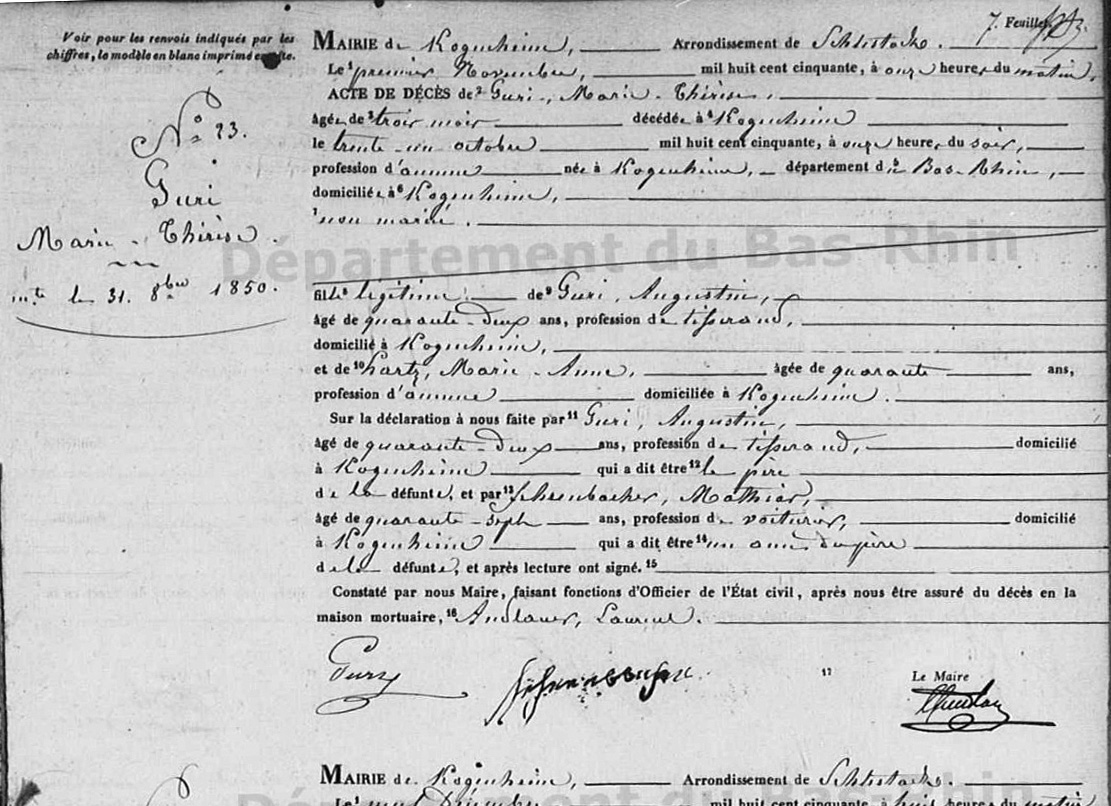 7. Feuille
Voir pour les renvois indiqués par les
chiffres, le modèle en blanc imprimé
MAIRIE de Kogenheim, Arrondissement de Schlestadt.
Le 1 premier Novembre, mil huit cent cinquante, à onze heures du matin,
ACTE DE DÉCÈS de 2 Guri, Marie-Thérèse,
âgée de 3 trois mois décédée à 4 Kogenheim
le trente-un octobre mil huit cent cinquante, à onze heures du soir,
profession d'aucune née à Kogenheim, département du 5 Bas-Rhin,
domiciliée à 6 Kogenheim,
7 non marié.
N° 23.
Guri
Marie-Thérèse.
le 31. 8bre 1850.
Département du Bas-Rhin
fille 8 légitime de 9 Guri, Augustin,
âgé de quarante-deux ans, profession de tisserand,
domicilié à Kogenheim,
et de 10 Hartz, Marie-Anne, âgée de quarante ans,
profession d'aucune domiciliée à Kogenheim.
Sur la déclaration à nous faite par 11 Guri, Augustin,
âgé de quarante-deux ans, profession de tisserand, domicilié
à Kogenheim qui a dit être 12 le père
de la défunte, et par 13 Schrenbacher, Mathias,
âgé de quarante-sept ans, profession de voiturier, domicilié
à Kogenheim qui a dit être 14 un ami du père
de la défunte, et après lecture ont signé. 15
Constaté par nous Maire, faisant fonctions d'Officier de l'État civil, après nous être assuré du décès en la
maison mortuaire, 16 Andlauer, Laurent.
Gury
17
Le Maire
MAIRIE de Kogenheim, Arrondissement de Schlestadt
Le 1 Décembre mil huit cent cinquante, à huit heures du matin
Département du Bas-Rhin